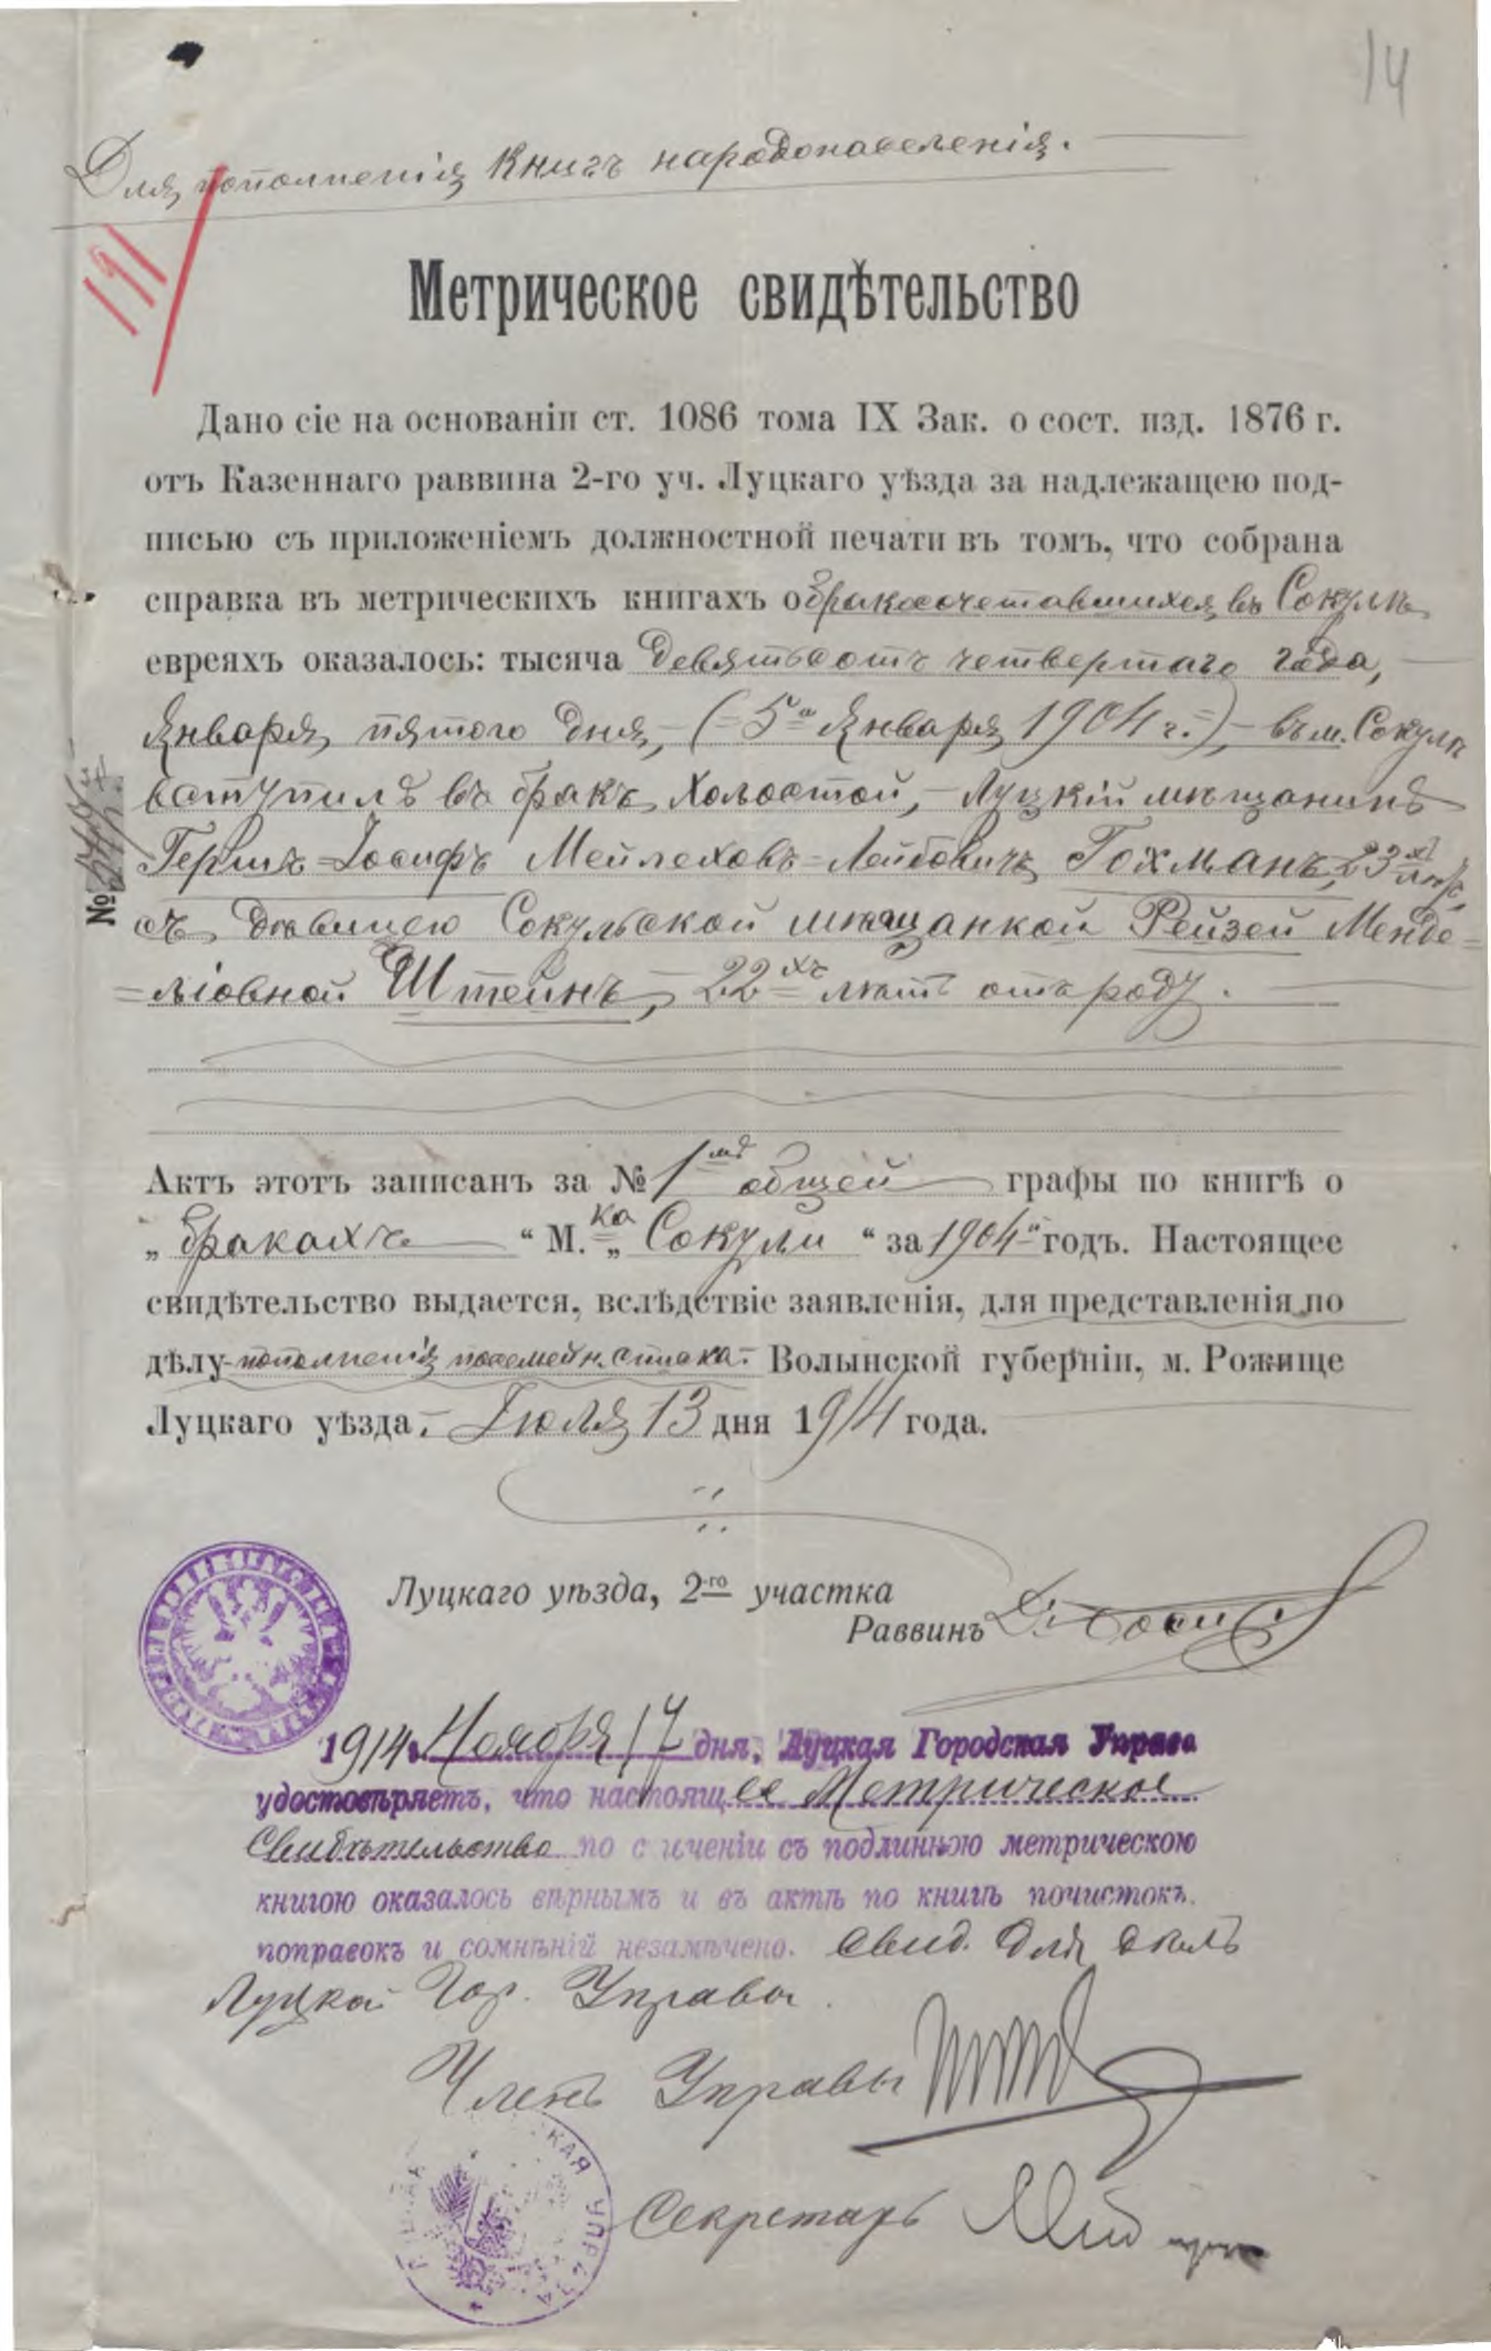 14
Для пополненія Книгъ народонаселенія.
191
Метрическое свидѣтельство
Дано сіе на основаніи ст. 1086 тома IX Зак. о сост. изд. 1876 г.
отъ Казеннаго раввина 2-го уч. Луцкаго уѣзда за надлежащею под-
писью съ приложеніемъ должностной печати въ томъ, что собрана
справка въ метрическихъ книгахъ о бракосочетавшихся въ Сокулѣ
евреяхъ оказалось: тысяча девятьсотъ четвертаго года,
Января пятого дня, (=5го Января 1904 г.=), въ м. Сокулѣ
вступилъ въ бракъ холостой, Луцкій мѣщанинъ
Гершъ=Іосифъ Мейлеховъ=Лейбовичъ Гохманъ, 23хъ лѣтъ,
съ дѣвицею Сокульской мѣщанкой Рейзей Менде=
=ліовной Штейнъ, 22хъ лѣтъ отъ роду.
№
Актъ этотъ записанъ за № 1мъ общей графы по книгѣ о
„бракахъ“ М.ка „Сокули“ за 1904й годъ. Настоящее
свидѣтельство выдается, вслѣдствіе заявленія, для представленія по
дѣлу пополненія посемейн. списка. Волынской губерніи, м. Рожище
Луцкаго уѣзда. Іюля 13 дня 1914 года.
Луцкаго уѣзда, 2-го участка
Раввинъ
1914 Ноября 17 дня, Луцкая Городская Управа
удостовѣряетъ, что настоящее Метрическое
Свидѣтельство по с иченіи съ подлинною метрическою
книгою оказалось вѣрнымъ и въ актѣ по книгѣ почистокъ.
поправокъ и сомнѣній незамѣчено. Свид. для дѣлъ
Луцкой Гор. Управы.
Членъ Управы
КАЯ УПРАВА
Секретарь